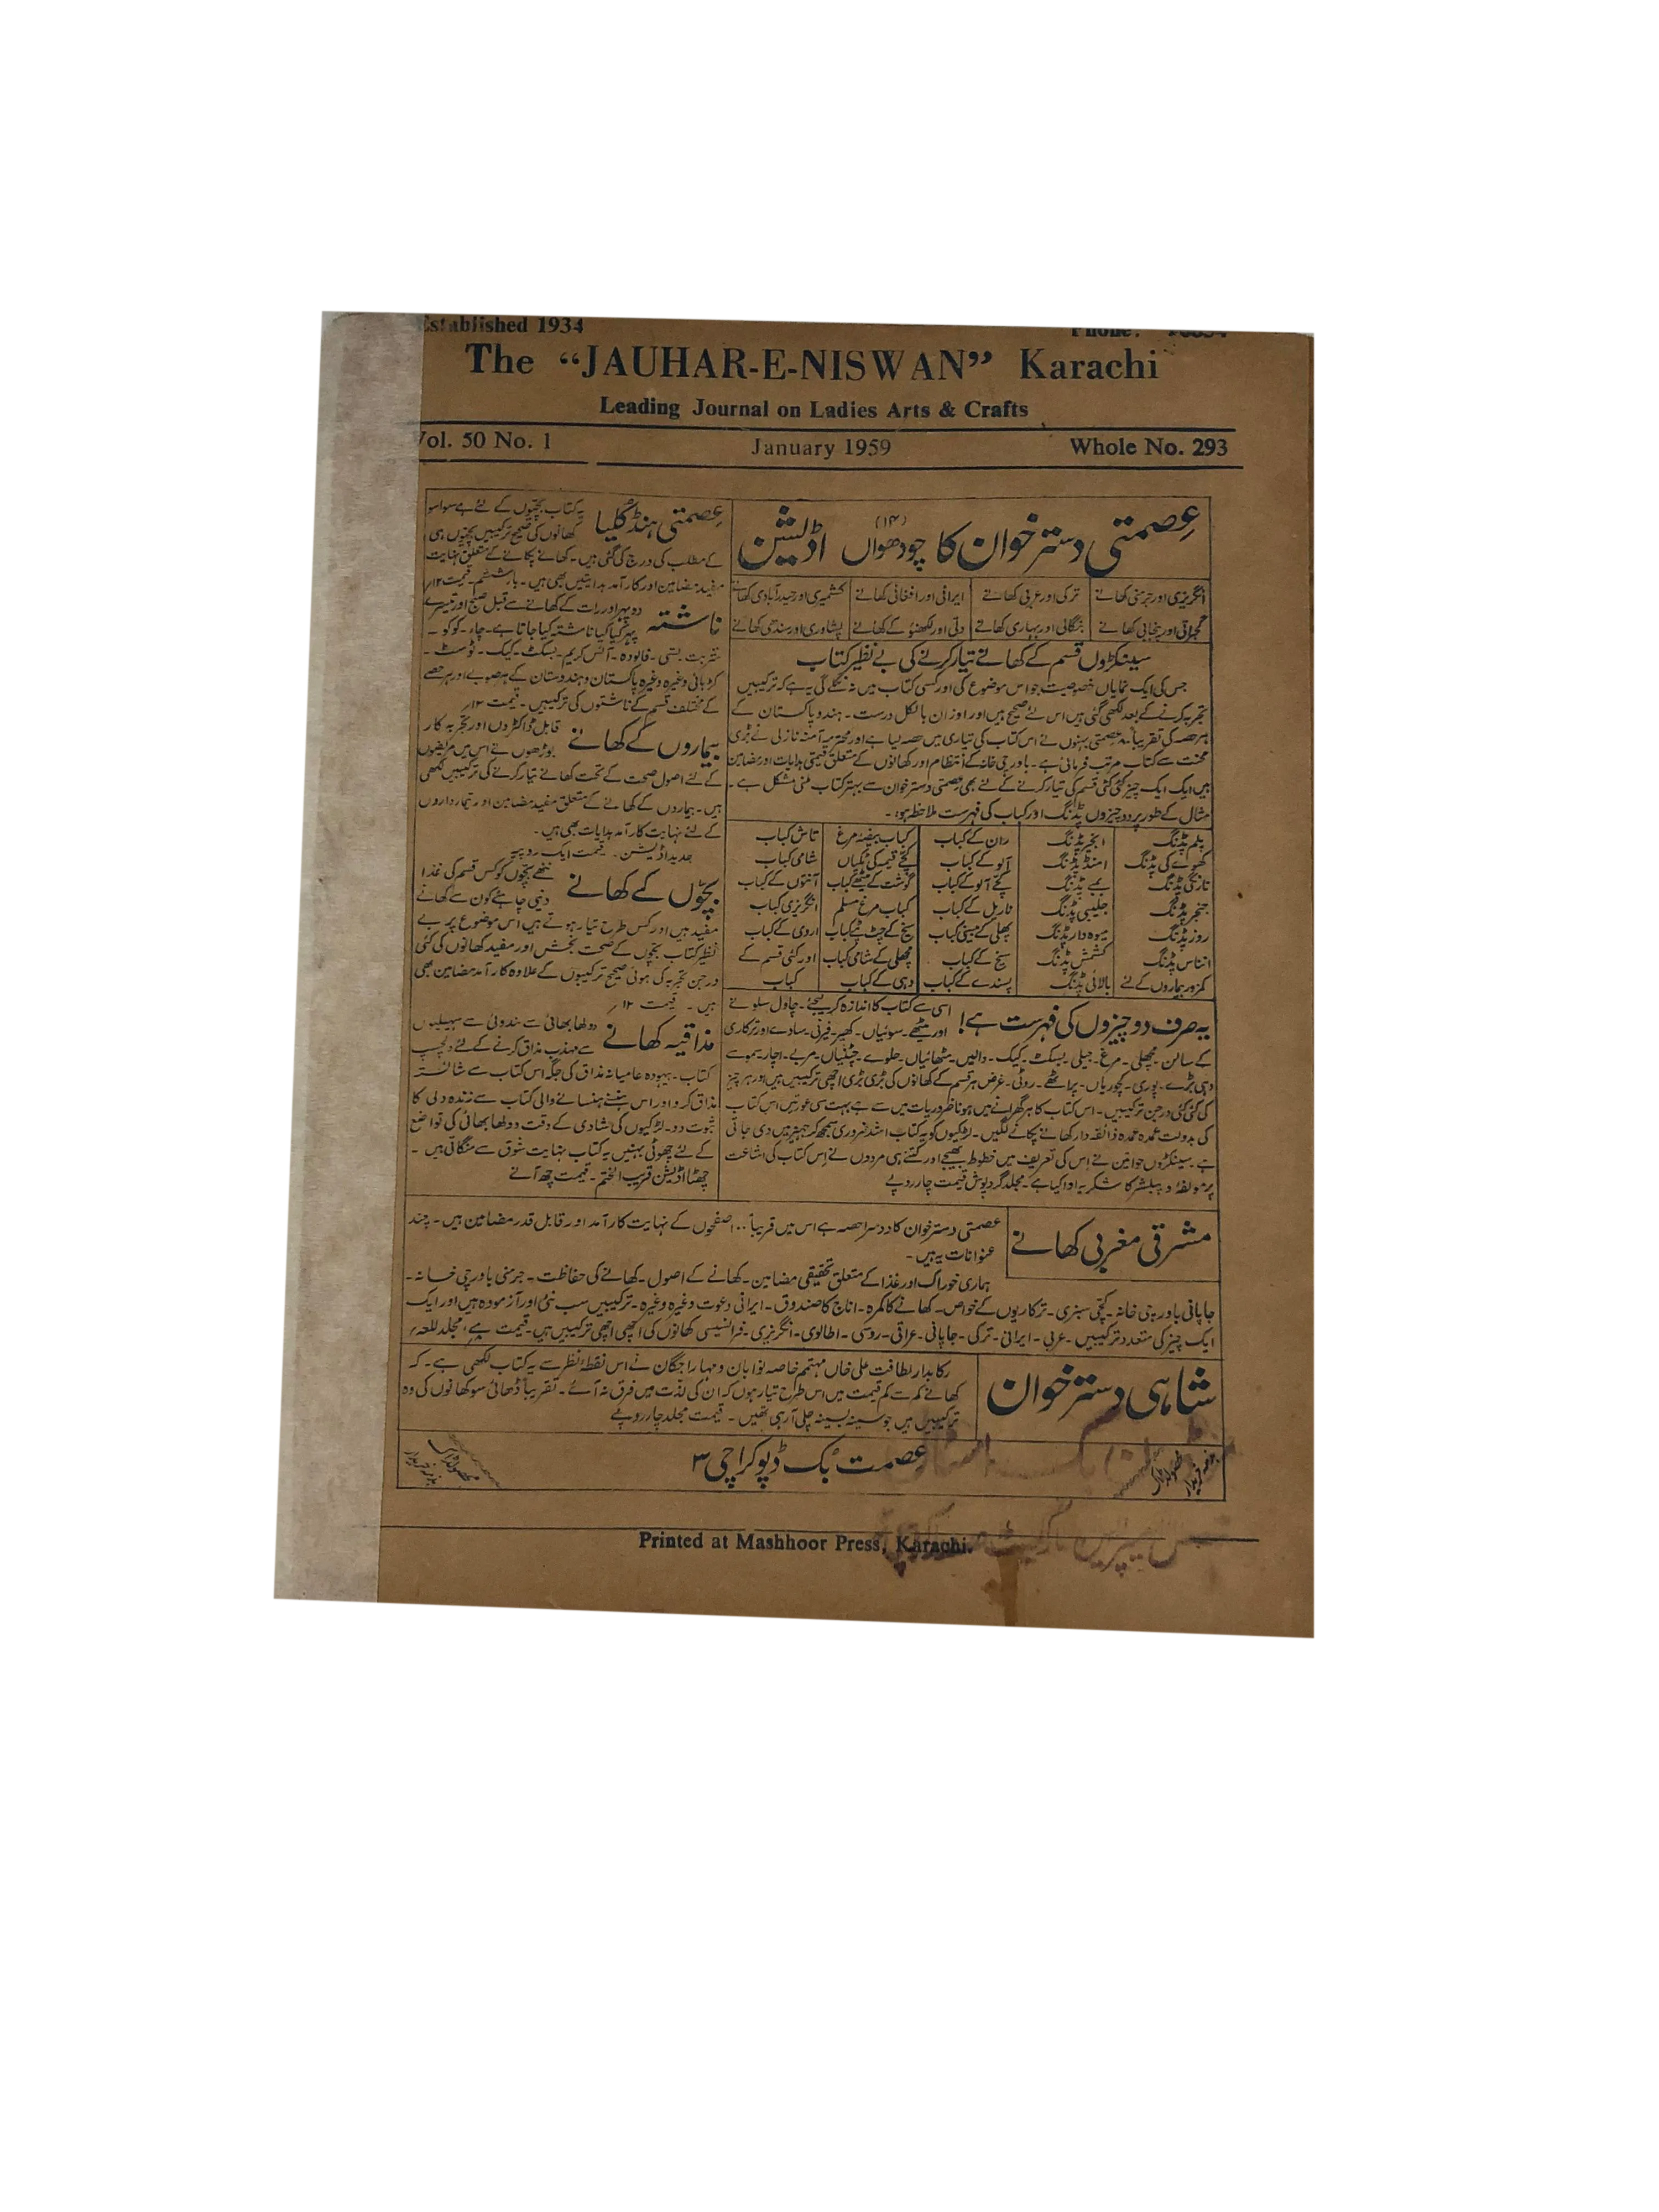 Established 1934
Phone:
The “JAUHAR-E-NISWAN” Karachi
Leading Journal on Ladies Arts & Crafts
Vol. 50 No. 1 January 1959 Whole No. 293
عصمتی دسترخوان کا چودھواں (۱۴) اڈیشن
انگریزی اور جرمنی کھانے ترکی اور عربی کھانے ایرانی اور افغانی کھانے کشمیری اور حیدرآبادی کھانے
گجراتی اور پنجابی کھانے بنگالی اور بہاری کھانے دلی اور لکھنؤ کے کھانے پشاوری اور سندھی کھانے
سینکڑوں قسم کے کھانے تیار کرنے کی بے نظیر کتاب
جس کی ایک نمایاں خصوصیت جو اس موضوع کی اور کسی کتاب میں نہ نکلے گی یہ ہے کہ ترکیبیں
تجربہ کرنے کے بعد لکھی گئی ہیں اس لئے صحیح ہیں اور اوزان بالکل درست۔ ہندو پاکستان کے
ہر حصہ کی تقریباً عصمتی بہنوں نے اس کتاب کی تیاری میں حصہ لیا ہے اور محترمہ آمنہ نازلی نے بڑی
محنت سے کتاب مرتب فرمائی ہے۔ باورچی خانہ کے انتظام اور کھانوں کے متعلق قیمتی ہدایات اور مضامین
ہیں ایک ایک چیز کئی کئی قسم کی تیار کرنے کے لئے بھی عصمتی دسترخوان سے بہتر کتاب ملنی مشکل ہے۔
مثال کے طور پر دو چیزوں پڈنگ اور کباب کی فہرست ملاحظہ ہو:۔
پلم پڈنگ انجیر پڈنگ ران کے کباب کباب بیضہ مرغ تاش کباب
کھوے کی پڈنگ امنڈ پڈنگ آلو کے کباب کچے قیمہ کی ٹکیاں شامی کباب
نارنگی پڈنگ بمبے پڈنگ کچے آلو کے کباب گوشت کے میٹھے کباب آنتوں کے کباب
جنجر پڈنگ جلیبی پڈنگ ناریل کے کباب کباب مرغ مسلم انگریزی کباب
روز پڈنگ میوہ دار پڈنگ مچھلی کے سیخی کباب سیخ کے چٹ پٹے کباب اروی کے کباب
انناس پڈنگ کشمش پڈنگ سیخ کے کباب مچھلی کے شامی کباب اور کئی قسم کے
کمزور بیماروں کے لئے بالائی پڈنگ پسندے کے کباب دہی کے کباب کباب
یہ صرف دو چیزوں کی فہرست ہے! اسی سے کتاب کا اندازہ کر لیجئے۔ چاول سلونے
اور میٹھے۔ سوئیاں۔ کھیر۔ فیرنی۔ سادے اور ترکاری
کے سالن۔ مچھلی۔ مرغ۔ جیلی۔ بسکٹ۔ کیک۔ دالیں۔ مٹھائیاں۔ حلوے۔ چٹنیاں۔ مربے۔ اچار۔ سموسے
دہی بڑے۔ پوری۔ کچوریاں۔ پراٹھے۔ روٹی۔ غرض ہر قسم کے کھانوں کی بڑی بڑی اچھی ترکیبیں ہیں اور ہر چیز
کی کئی کئی درجن ترکیبیں۔ اس کتاب کا ہر گھرانے میں ہونا ضروریات میں سے ہے بہت سی عورتیں اس کتاب
کی بدولت عمدہ عمدہ ذائقہ دار کھانے پکانے لگیں۔ لڑکیوں کو یہ کتاب اشد ضروری سمجھ کر جہیز میں دی جاتی
ہے۔ سینکڑوں خواتین نے اس کی تعریف میں خطوط بھیجے اور کتنے ہی مردوں نے اس کتاب کی اشاعت
پر مولفہ و پبلشر کا شکریہ ادا کیا ہے۔ مجلد گردپوش قیمت چار روپے
عصمتی ہنڈ کلیا یہ کتاب بچیوں کے لئے ہے سوا سو
کھانوں کی صحیح ترکیبیں بچیوں ہی
کے مطلب کی درج کی گئی ہیں۔ کھانے پکانے کے متعلق نہایت
مفید مضامین اور کارآمد ہدایتیں بھی ہیں۔ بار ششم۔ قیمت ۱۲؍
ناشتہ دوپہر اور رات کے کھانے سے قبل صبح اور تیسرے
پہر کیا کیا ناشتہ کیا جاتا ہے۔ چاء۔ کوکو۔
شربت۔ لسی۔ فالودہ۔ آئس کریم۔ بسکٹ۔ کیک۔ ٹوسٹ۔
وغیرہ وغیرہ پاکستان و ہندوستان کے ہر صوبے اور ہر حصے
کے مختلف قسم کے ناشتوں کی ترکیبیں۔ قیمت ۱۲؍
بیماروں کے کھانے قابل ڈاکٹروں اور تجربہ کار
بوڑھوں نے اس میں مریضوں
کے لئے اصول صحت کے تحت کھانے تیار کرنے کی ترکیبیں لکھی
ہیں۔ بیماروں کے کھانے کے متعلق مفید مضامین اور تیمارداروں
کے لئے نہایت کارآمد ہدایات بھی ہیں۔
جدید اڈیشن۔ قیمت ایک روپیہ
بچوں کے کھانے ننھے بچوں کو کس قسم کی غذا
دینی چاہئے کون سے کھانے
مفید ہیں اور کس طرح تیار ہوتے ہیں اس موضوع پر بے
نظیر کتاب بچوں کے صحت بخش اور مفید کھانوں کی کئی
درجن تجربہ کی ہوئی صحیح ترکیبوں کے علاوہ کارآمد مضامین بھی
ہیں۔ قیمت ۱۲؍
مذاقیہ کھانے دولھا بھائی سے نندوئی سے سہیلیوں
سے مہذب مذاق کرنے کے لئے دلچسپ
کتاب۔ بیہودہ عامیانہ مذاق کی جگہ اس کتاب سے شائستہ
مذاق کرو اور اس ہنسنے ہنسانے والی کتاب سے زندہ دلی کا
ثبوت دو۔ لڑکیوں کی شادی کے وقت دولھا بھائی کی تواضع
کے لئے چھوٹی بہنیں یہ کتاب نہایت شوق سے منگاتی ہیں۔
چھٹا اڈیشن قریب الختم۔ قیمت چھ آنے
مشرقی مغربی کھانے
عصمتی دسترخوان کا دوسرا حصہ ہے اس میں قریباً ۱۰۰ صفحوں کے نہایت کارآمد اور قابل قدر مضامین ہیں۔ چند
عنوانات یہ ہیں۔
ہماری خوراک اور غذا کے متعلق تحقیقی مضامین۔ کھانے کے اصول۔ کھانے کی حفاظت۔ جرمنی باورچی خانہ۔
جاپانی باورچی خانہ۔ کچی سبزی۔ ترکاریوں کے خواص۔ کھانے کا کمرہ۔ اناج کا صندوق۔ ایرانی دعوت وغیرہ وغیرہ۔ ترکیبیں سب نئی اور آزمودہ ہیں اور ایک
ایک چیز کی متعدد ترکیبیں۔ عربی۔ ایرانی۔ ترکی۔ جاپانی۔ عراقی۔ روسی۔ اطالوی۔ انگریزی۔ فرانسیسی کھانوں کی اچھی اچھی ترکیبیں ہیں۔ قیمت مجلد
شاہی دسترخوان
رکابدار لطافت علی خاں مہتمم خاصہ نوابان و مہاراجگان نے اس نقطۂ نظر سے یہ کتاب لکھی ہے۔ کہ
کھانے کم سے کم قیمت میں اس طرح تیار ہوں کہ ان کی لذت میں فرق نہ آئے۔ تقریباً ڈھائی سو کھانوں کی وہ
ترکیبیں ہیں جو سینہ بسینہ چلی آرہی تھیں۔ قیمت مجلد چار روپے
محصول ڈاک بذمہ خریدار عصمت بک ڈپو کراچی ۳ محصول ڈاک بذمہ خریدار
Printed at Mashhoor Press, Karachi.